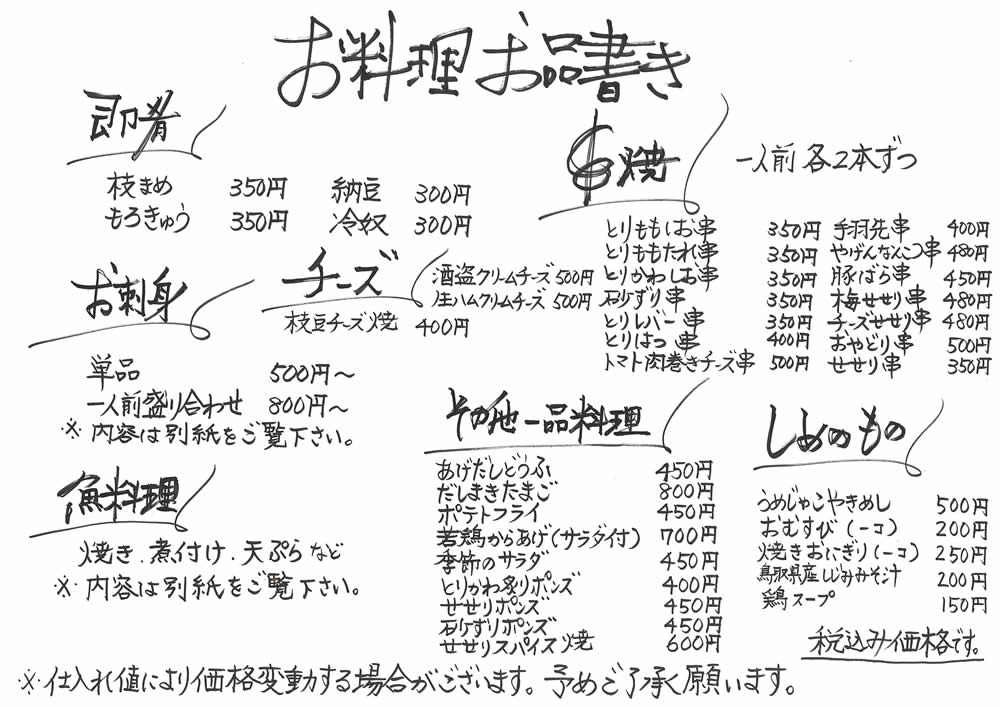 お料理 お品書き
即肴
枝まめ 350円 納豆 300円
もろきゅう 350円 冷奴 300円
串焼 一人前 各2本ずつ
とりももしお串 350円 手羽先串 400円
とりももたれ串 350円 やげんなんこつ串 480円
とりかわしお串 350円 豚ばら串 450円
砂ずり串 350円 梅せせり串 480円
とりレバー串 350円 チーズせせり串 480円
とりはつ串 400円 おやどり串 500円
トマト肉巻きチーズ串 500円 せせり串 350円
お刺身
単品 500円～
一人前盛り合わせ 800円～
※内容は別紙をご覧下さい。
チーズ 酒盗クリームチーズ 500円
生ハムクリームチーズ 500円
枝豆チーズ焼 400円
魚料理
焼き.煮付け.天ぷらなど
※内容は別紙をご覧下さい。
その他一品料理
あげだしどうふ 450円
だしまきたまご 800円
ポテトフライ 450円
若鶏からあげ(サラダ付) 700円
季節のサラダ 450円
とりかわ炙りポンズ 400円
せせりポンズ 450円
砂ずりポンズ 450円
せせりスパイス焼 600円
しめのもの
うめじゃこやきめし 500円
おむすび(一コ) 200円
焼きおにぎり(一コ) 250円
鳥取県産しじみみそ汁 200円
鶏スープ 150円
税込み価格です。
※仕入れ値により価格変動する場合がございます。予めご了承願います。